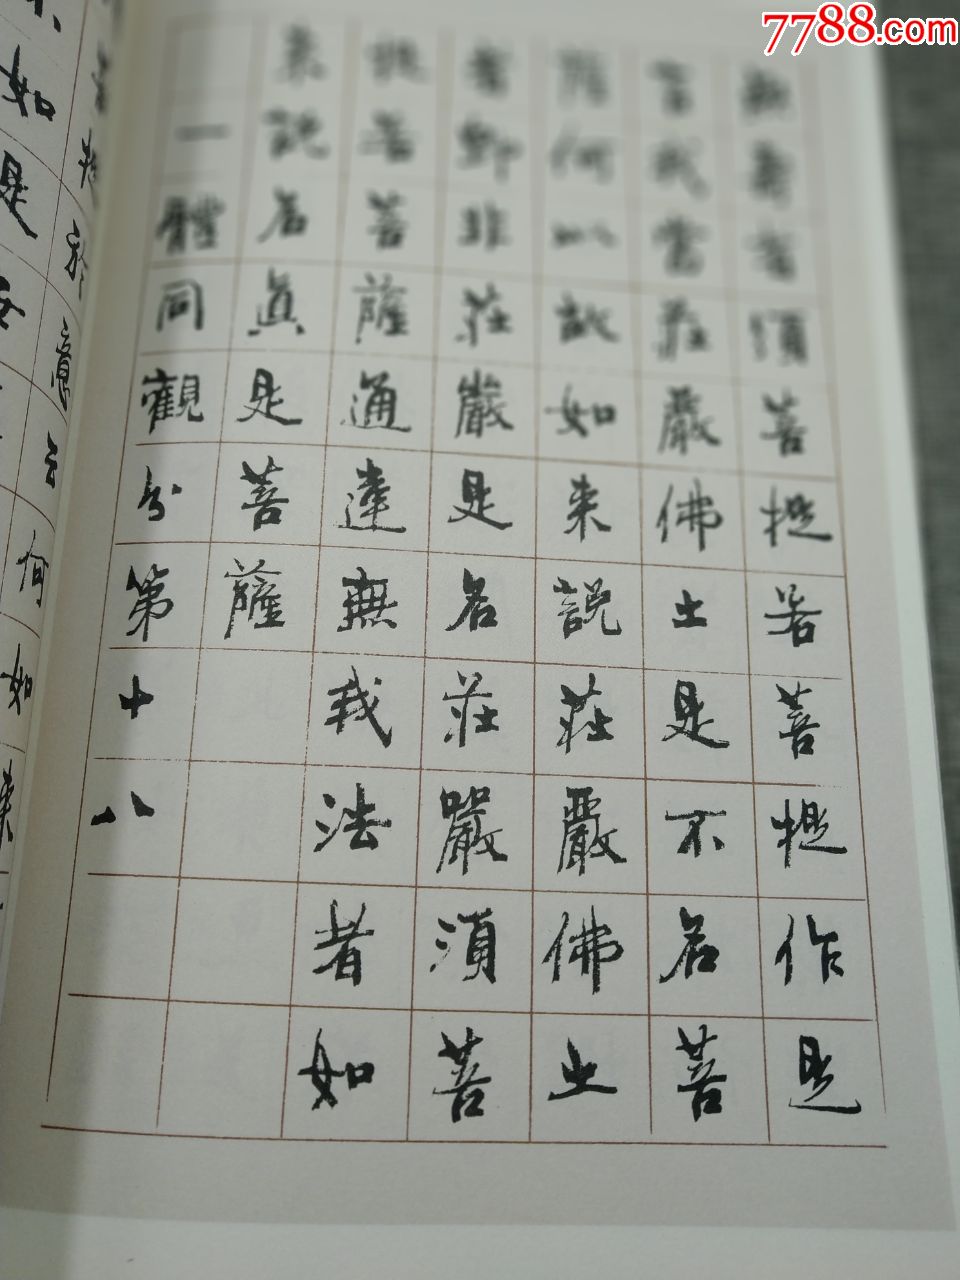 7788.com
無壽者須菩提若菩提作是
言我當莊嚴佛土是不名菩
薩何以故如来說莊嚴佛土
者即非莊嚴是名莊嚴須菩
提若菩薩通達無我法者如
来說名真是菩薩
一體同觀分第十八
菩提於意云何如来
如是